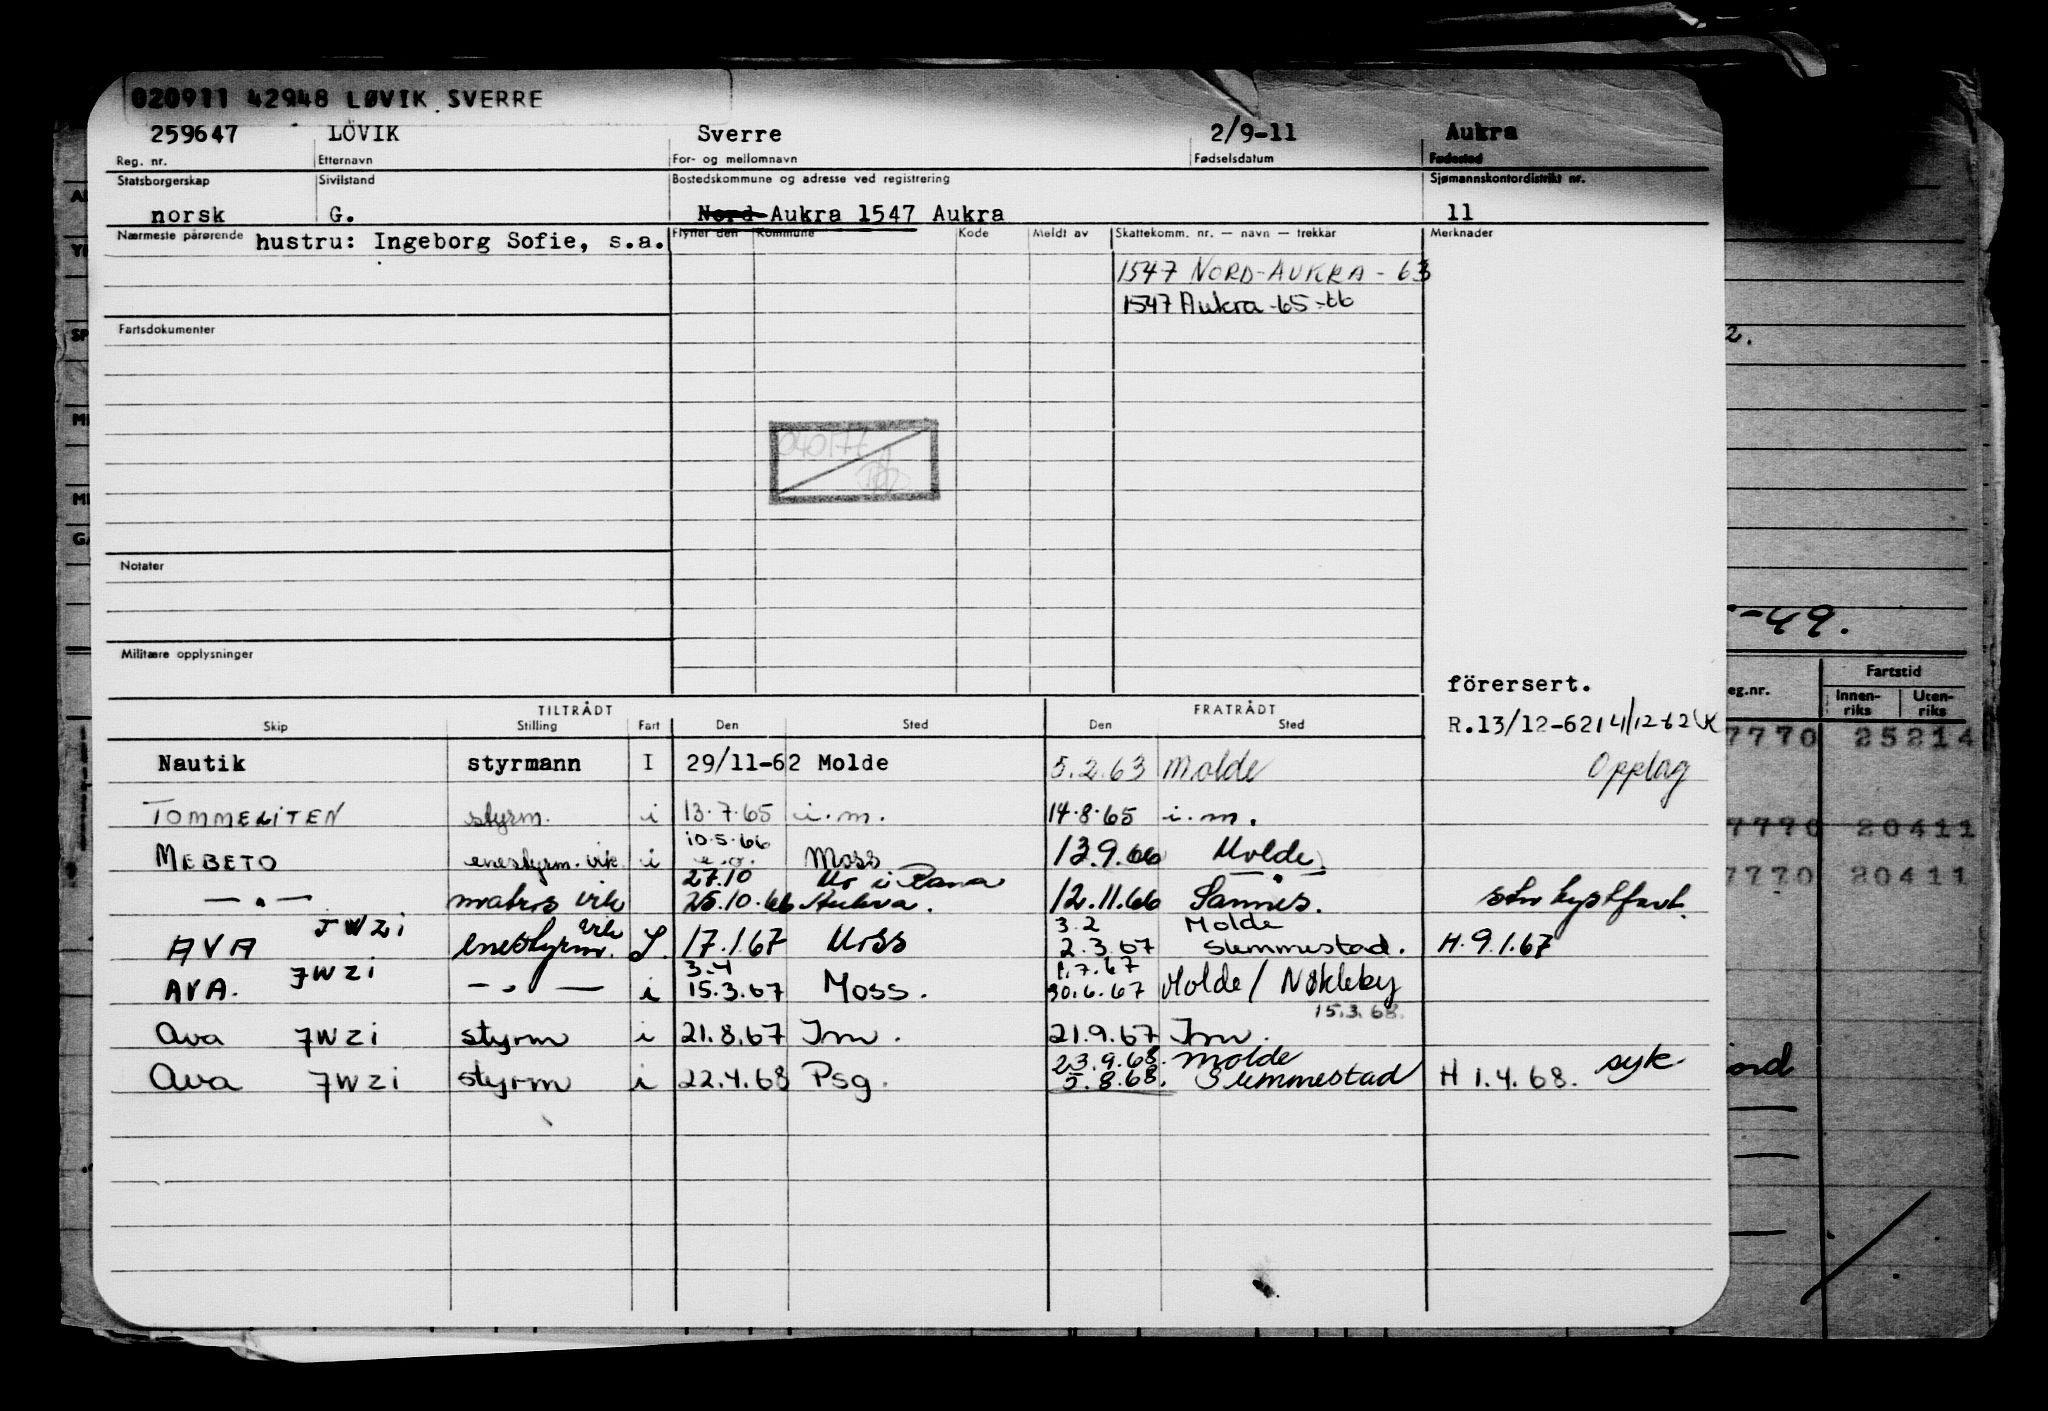 020911 42948 LØVIK SVERRE
259647 LÖVIK Sverre 2/9-11 Aukra
Reg. nr. Etternavn For- og mellomnavn Fødselsdatum Fødested
Statsborgerskap Sivilstand Bostedskommune og adresse ved registrering Sjømannskontordistrikt nr.
norsk G. Nord-Aukra 1547 Aukra 11
Nærmeste pårørende hustru: Ingeborg Sofie, s.a. Flytter den Kommune Kode Meldt av Skattekomm. nr. — navn — trekkår Merknader
1547 NORD-AUKRA - 63
1547 Aukra -65 -66
Fartsdokumenter
2.
040177
Notater
-49.
Militære opplysninger
førersert.
eg.nr. Fartstid
Innen-riks Uten-riks
TILTRÅDT FRATRÅDT
Skip Stilling Fart Den Sted Den Sted
R.13/12-62 14/12-62
7770 25214
Nautik styrmann I 29/11-62 Molde 5.2.63 Molde Opplag
TOMMELITEN styrm. i 13.7.65 i.m. 14.8.65 i.m.
7790 20411
10.5.66
MEBETO enestyrm. vik. i Moss 13.9.66 Molde
7770 20411
27.10 Mo i Rana
— " — matros vik 25.10.66 Aukra. 12.11.66 Sannes. stor kystfart.
JWZI vik 3.2 Molde
AVA enestyrm. S. 17.1.67 Moss 2.3.67 Slemmestad. H.9.1.67
JWZI 3.4 1.7.67
AVA. — " — i 15.3.67 Moss. 30.6.67 Molde / Nøkleby
15.3.68.
Ava JWZI styrm i 21.8.67 Im. 21.9.67 Im.
23.9.68. Molde syk.
Ava JWZI styrm i 22.4.68 Psg. 5.8.68. Slemmestad H 1.4.68.
ord